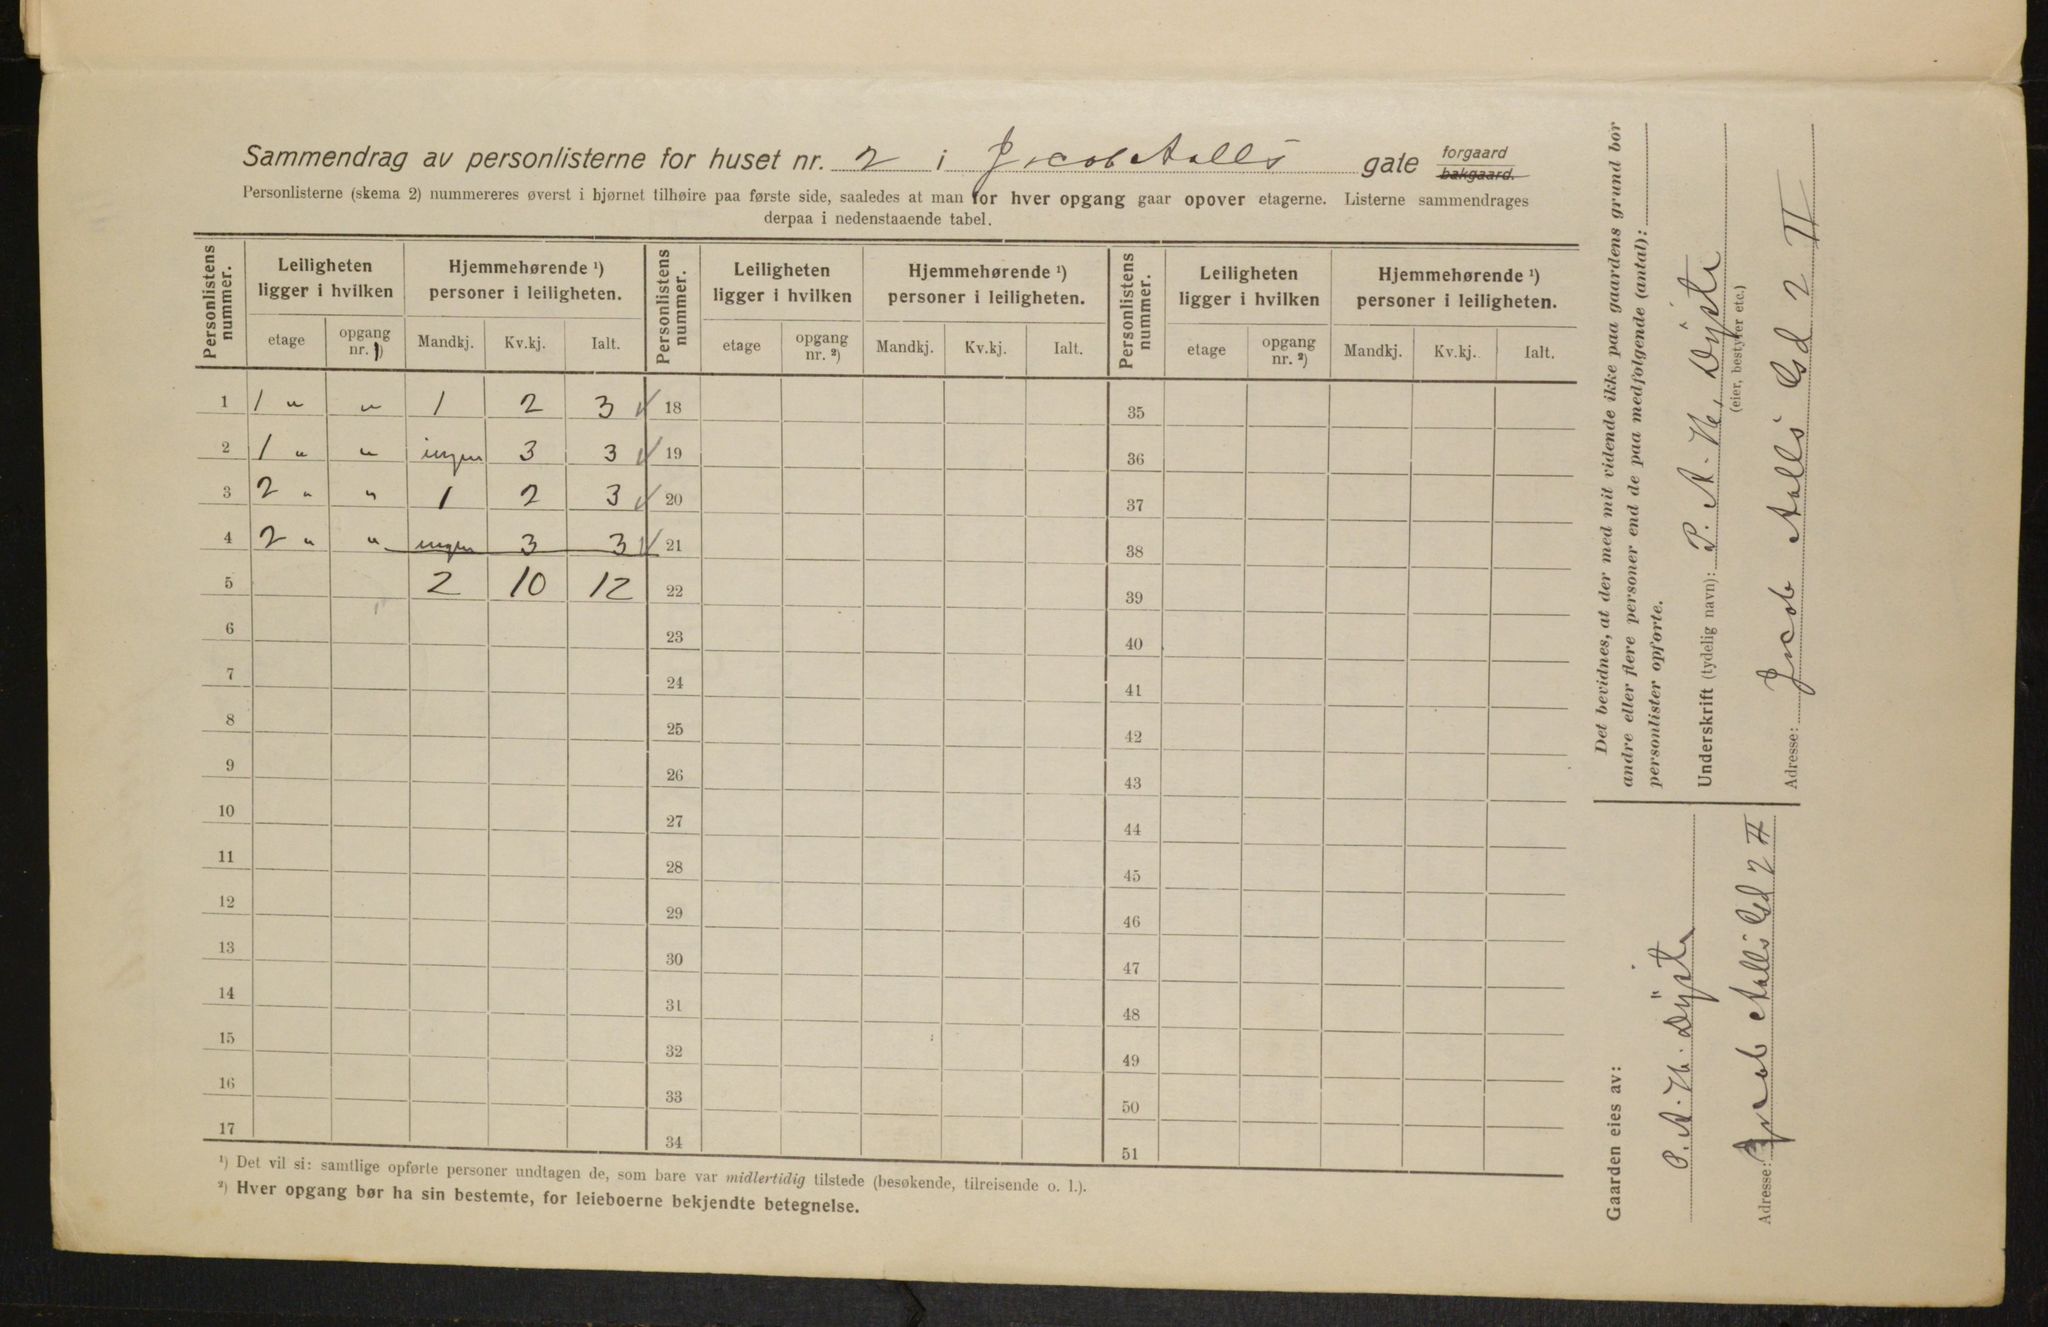 Sammendrag av personlisterne for huset nr. 2 i Jacob Aalls gate forgaard bakgaard.
Personlisterne (skema 2) nummereres øverst i hjørnet tilhøire paa første side, saaledes at man for hver opgang gaar opover etagerne. Listerne sammendrages
derpaa i nedenstaaende tabel.
Personlistens nummer. Leiligheten ligger i hvilken Hjemmehørende ¹) personer i leiligheten. Personlistens nummer. Leiligheten ligger i hvilken Hjemmehørende ¹) personer i leiligheten. Personlistens nummer. Leiligheten ligger i hvilken Hjemmehørende ¹) personer i leiligheten.
etage opgang nr. ²) Mandkj. Kv.kj. Ialt. etage opgang nr. ²) Mandkj. Kv.kj. Ialt. etage opgang nr. ²) Mandkj. Kv.kj. Ialt.
1 1 " " 1 2 3 ✓ 18 35
2 1 " " ingen 3 3 ✓ 19 36
3 2 " " 1 2 3 ✓ 20 37
4 2 " " ingen 3 3 ✓ 21 38
5 2 10 12 22 39
6 23 40
7 24 41
8 25 42
9 26 43
10 27 44
11 28 45
12 29 46
13 30 47
14 31 48
15 32 49
16 33 50
17 34 51
¹) Det vil si: samtlige opførte personer undtagen de, som bare var midlertidig tilstede (besøkende, tilreisende o. l.).
²) Hver opgang bør ha sin bestemte, for leieboerne bekjendte betegnelse.
Det bevidnes, at der med mit vidende ikke paa gaardens grund bor
andre eller flere personer end de paa medfølgende (antal):
personlister opførte.
Underskrift (tydelig navn): P. A. M. Dyste
(eier, bestyrer etc.)
Adresse: Jacob Aalls Gd 2 II
Gaarden eies av:
P. A. M. Dyste
Adresse: Jacob Aalls Gd 2 II